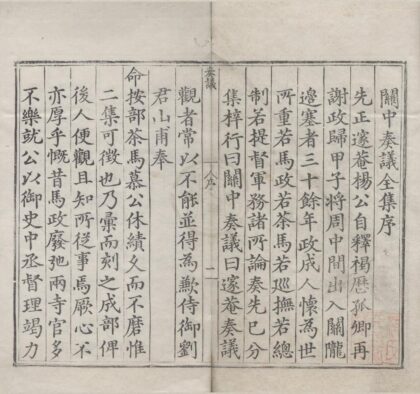 關中奏議全集序
先正邃庵楊公自釋褐歷孤卿再
謝政歸甲子將周中間出入關隴
邊塞者三十餘年政成人懷為世
所重若馬政若茶馬若巡撫若總
制若提督軍務諸所論奏先已分
集梓行曰關中奏議曰邃庵奏議
奏議
一
觀者常以不能並得為歉侍御劉
君山甫奉
命按部茶馬慕公休績久而不磨惟
二集可徵也乃彙而刻之成部俾
後人便觀且知所從事焉厥心不
亦厚乎慨昔馬政廢弛兩寺官多
不樂就公以御史中丞督理竭力